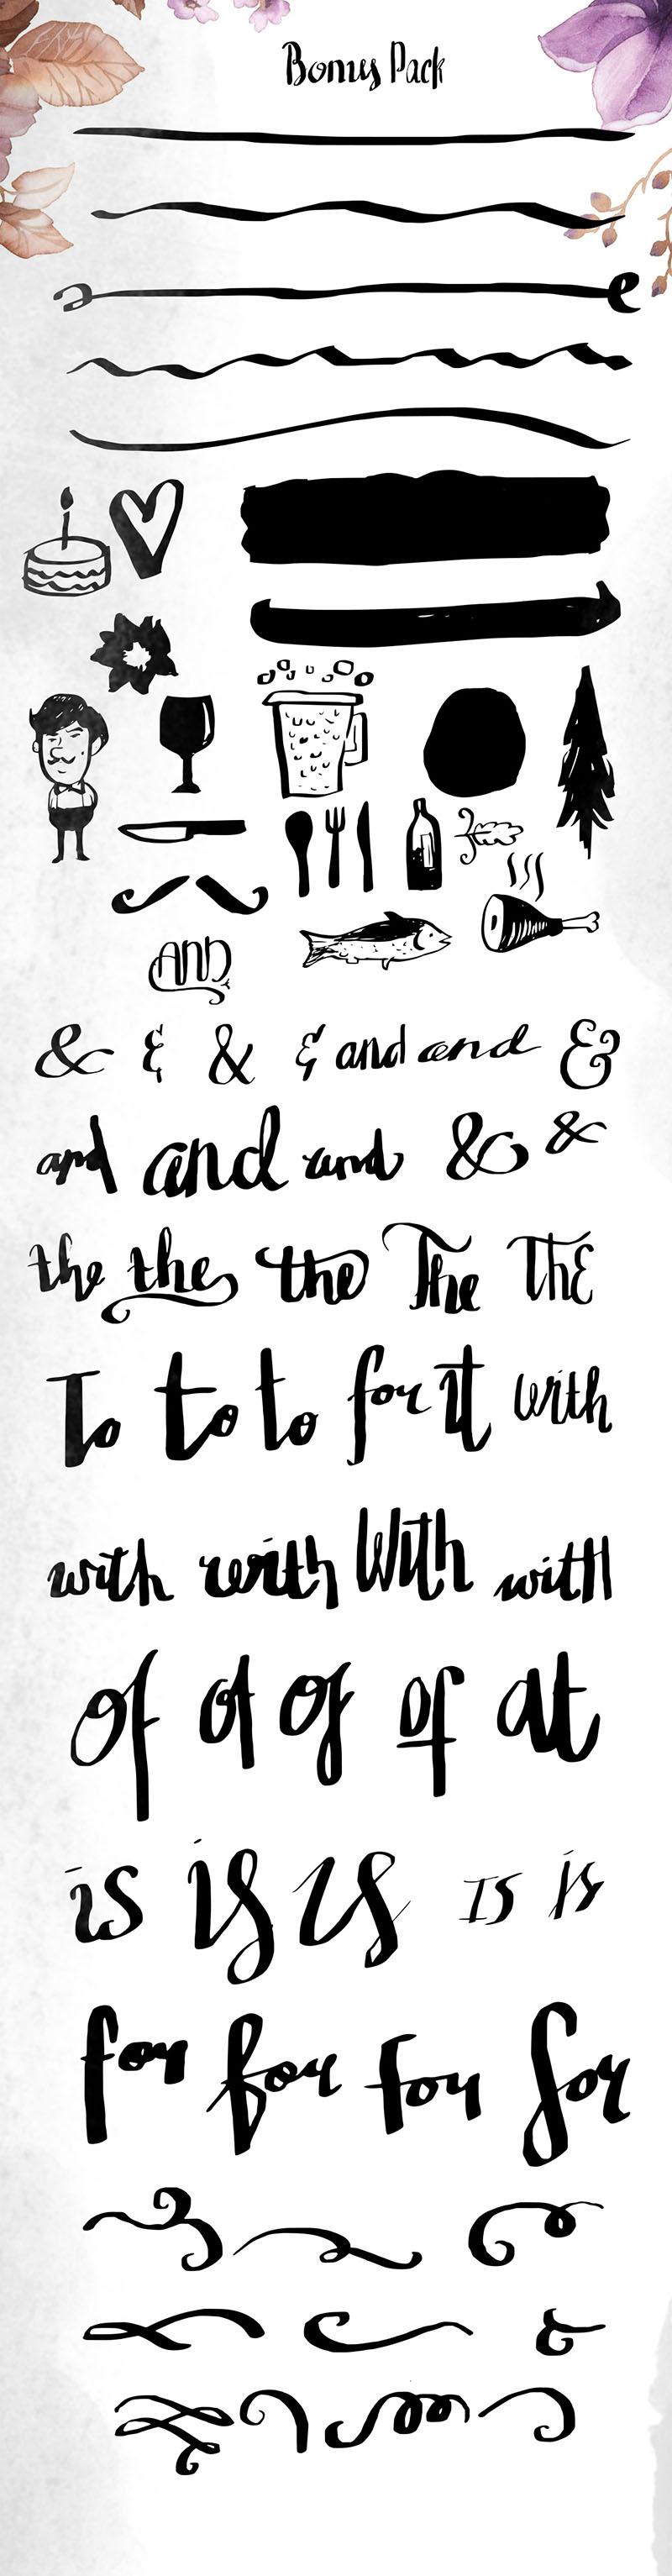 Bonus Pack
AND
& & & & and and &
and and and & &
the the the The ThE
To to to for it with
with with With with
of of of of at
is is is Is is
for for for for